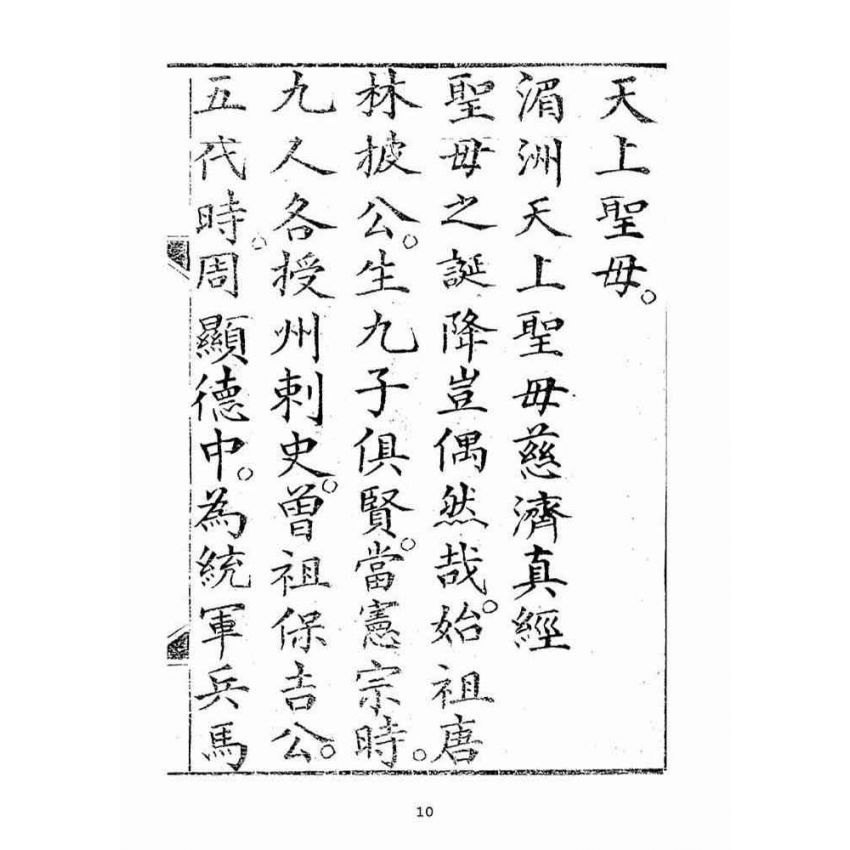 天上聖母。
湄洲天上聖母慈濟真經
聖母之誕降豈偶然哉。始祖唐
林披公。生九子俱賢。當憲宗時。
九人各授州刺史。曾祖保吉公。
五代時。周顯德中。為統軍兵馬
10